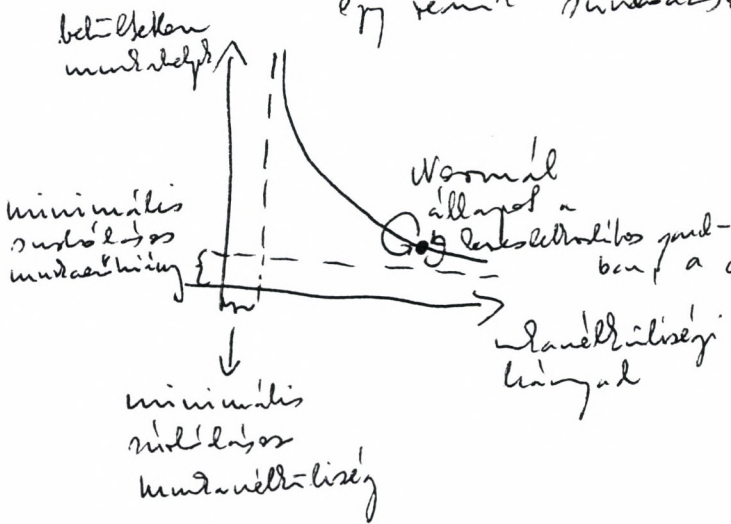 egy
betöltetlen
munkahelyek
Normál
állapot a
keresletkorlátos gazd-
ban, a
minimális
súrlódásos
munkaerőhiány
munkanélküliségi
hányad
minimális
súrlódásos
munkanélküliség